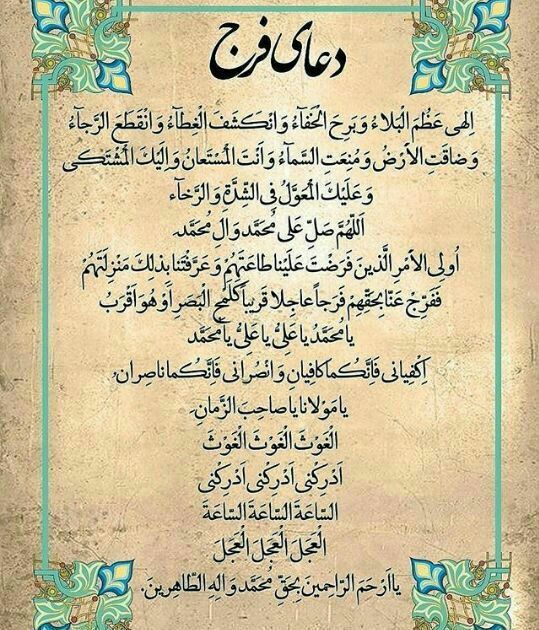 دعای فرج
اِلهی عَظُمَ الْبَلاءُ وَ بَرِحَ الْخَفآءُ وَ انْکَشَفَ الْغِطآءُ وَ انْقَطَعَ الرَّجآءُ
وَ ضاقَتِ الْاَرْضُ وَ مُنِعَتِ السَّمآءُ وَ اَنْتَ الْمُسْتَعانُ وَ اِلَیْكَ الْمُشْتَکی
وَ عَلَیْكَ الْمُعَوَّلُ فِی الشِّدَّةِ وَ الرَّخآءِ
اَللّهُمَّ صَلِّ عَلی مُحَمَّدٍ وَ الِ مُحَمَّدٍ.
اُولِی الْاَمْرِ الَّذینَ فَرَضْتَ عَلَیْنا طاعَتَهُمْ وَ عَرَّفْتَنا بِذلِكَ مَنْزِلَتَهُمْ
فَفَرِّجْ عَنّا بِحَقِّهِمْ فَرَجاً عاجِلا قَریباً کَلَمْحِ الْبَصَرِ اَوْ هُوَ اَقْرَبُ
یا مُحَمَّدُ یا عَلِیُّ یا عَلِیُّ یا مُحَمَّد
اِکْفِیانی فَاِنَّکُما کافِیانِ وَ انْصُرانی فَاِنَّکُما ناصِرانِ.
یا مَوْلانا یا صاحِبَ الزَّمانِ.
الْغَوْثَ الْغَوْثَ الْغَوْثَ
اَدْرِکْنی اَدْرِکْنی اَدْرِکْنی
السّاعَةَ السّاعَةَ السّاعَةَ
الْعَجَلَ الْعَجَلَ الْعَجَلَ
یا اَرْحَمَ الرّاحِمینَ بِحَقِّ مُحَمَّدٍ وَ الِهِ الطّاهِرینَ.